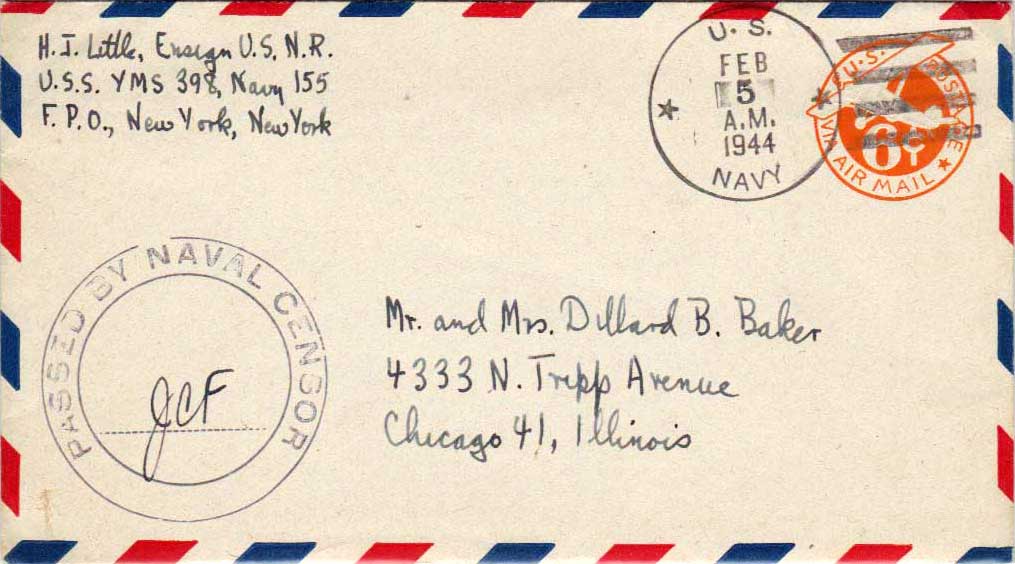 H. J. Little, Ensign U.S.N.R.
U.S.S. YMS 398, Navy 155
F. P. O., New York, New York
U. S.
FEB
5
A.M.
1944
NAVY
U.S. POSTAGE
6¢
VIA AIR MAIL
PASSED BY NAVAL CENSOR
JCF
Mr. and Mrs. Dillard B. Baker
4333 N. Tripp Avenue
Chicago 41, Illinois